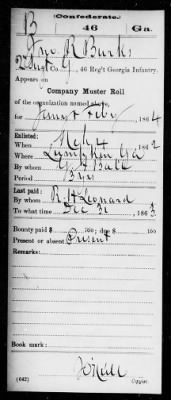 (Confederate.)
B 46 Ga.
Jno R Burks
2d Sergt Co G, 46 Reg't Georgia Infantry.
Appears on
Company Muster Roll
of the organization named above,
for Jany & Feby, 1864
Enlisted:
When Mch 4, 1862
Where Lumpkin Ga
By whom
Period 3 yrs
Last paid:
By whom R H Leonard
To what time Dec 31, 1863
Bounty paid $ 100; due $ 100
Present or absent Present
Remarks:
Book mark:
(642) Copyist.